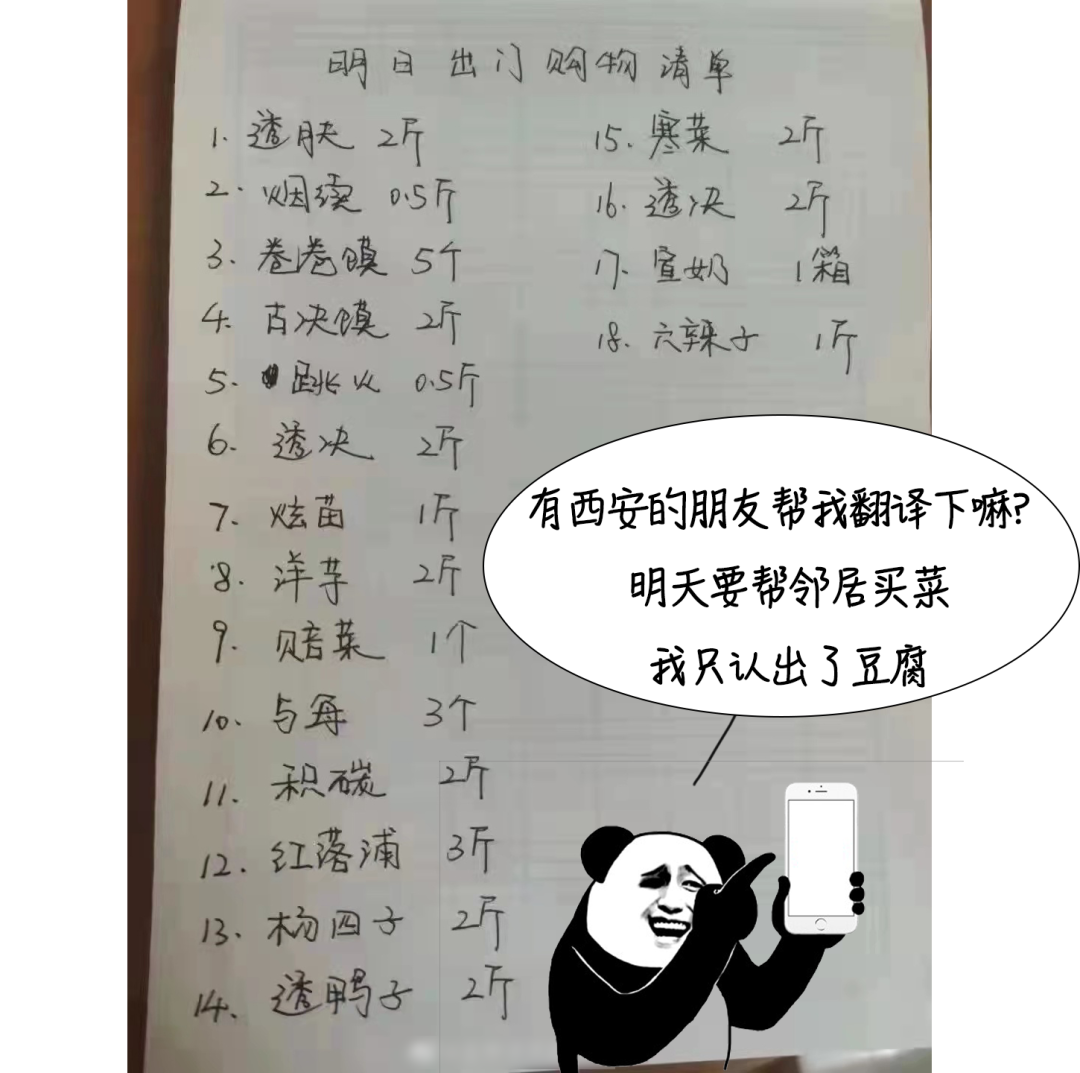 明日出门购物清单
1. 透肤 2斤
2. 烟续 0.5斤
3. 卷卷馍 5个
4. 古决馍 2斤
5. 跳火 0.5斤
6. 透决 2斤
7. 炫苗 1斤
8. 洋芋 2斤
9. 赔菜 1个
10. 与每 3个
11. 积碳 2斤
12. 红落浦 3斤
13. 杨四子 2斤
14. 透鸭子 2斤
15. 寒菜 2斤
16. 透决 2斤
17. 宣奶 1箱
18. 六辣子 1斤
有西安的朋友帮我翻译下嘛?
明天要帮邻居买菜
我只认出了豆腐